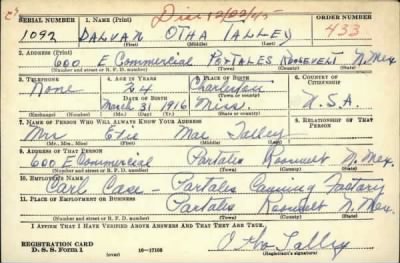 Disc 12/22/45
SERIAL NUMBER 1. NAME (Print) ORDER NUMBER
1092 DALVAN OTHA TALLEY 433
(First) (Middle) (Last)
2. ADDRESS (Print)
600 E Commercial PORTALES ROOSEVELT N. Mex
(Number and street or R. F. D. number) (Town) (County) (State)
3. TELEPHONE 4. AGE IN YEARS 5. PLACE OF BIRTH 6. COUNTRY OF CITIZENSHIP
None 24 Charleston
DATE OF BIRTH (Town or county)
March 31 1916 Miss. U.S.A.
(Exchange) (Number) (Mo.) (Day) (Yr.) (State or country)
7. NAME OF PERSON WHO WILL ALWAYS KNOW YOUR ADDRESS 8. RELATIONSHIP OF THAT PERSON
Mrs Mae Talley
(Mr., Mrs., Miss) (First) (Middle) (Last)
9. ADDRESS OF THAT PERSON
600 E Commercial Portales Roosevelt N. Mex.
(Number and street or R. F. D. number) (Town) (County) (State)
10. EMPLOYER'S NAME
Carl Case - Portales Canning Factory
11. PLACE OF EMPLOYMENT OR BUSINESS
Portales Roosevelt N. Mex.
(Number and street or R. F. D. number) (Town) (County) (State)
I AFFIRM THAT I HAVE VERIFIED ABOVE ANSWERS AND THAT THEY ARE TRUE.
REGISTRATION CARD
D. S. S. Form 1 (over) 16-17105 Talley
(Registrant's signature)